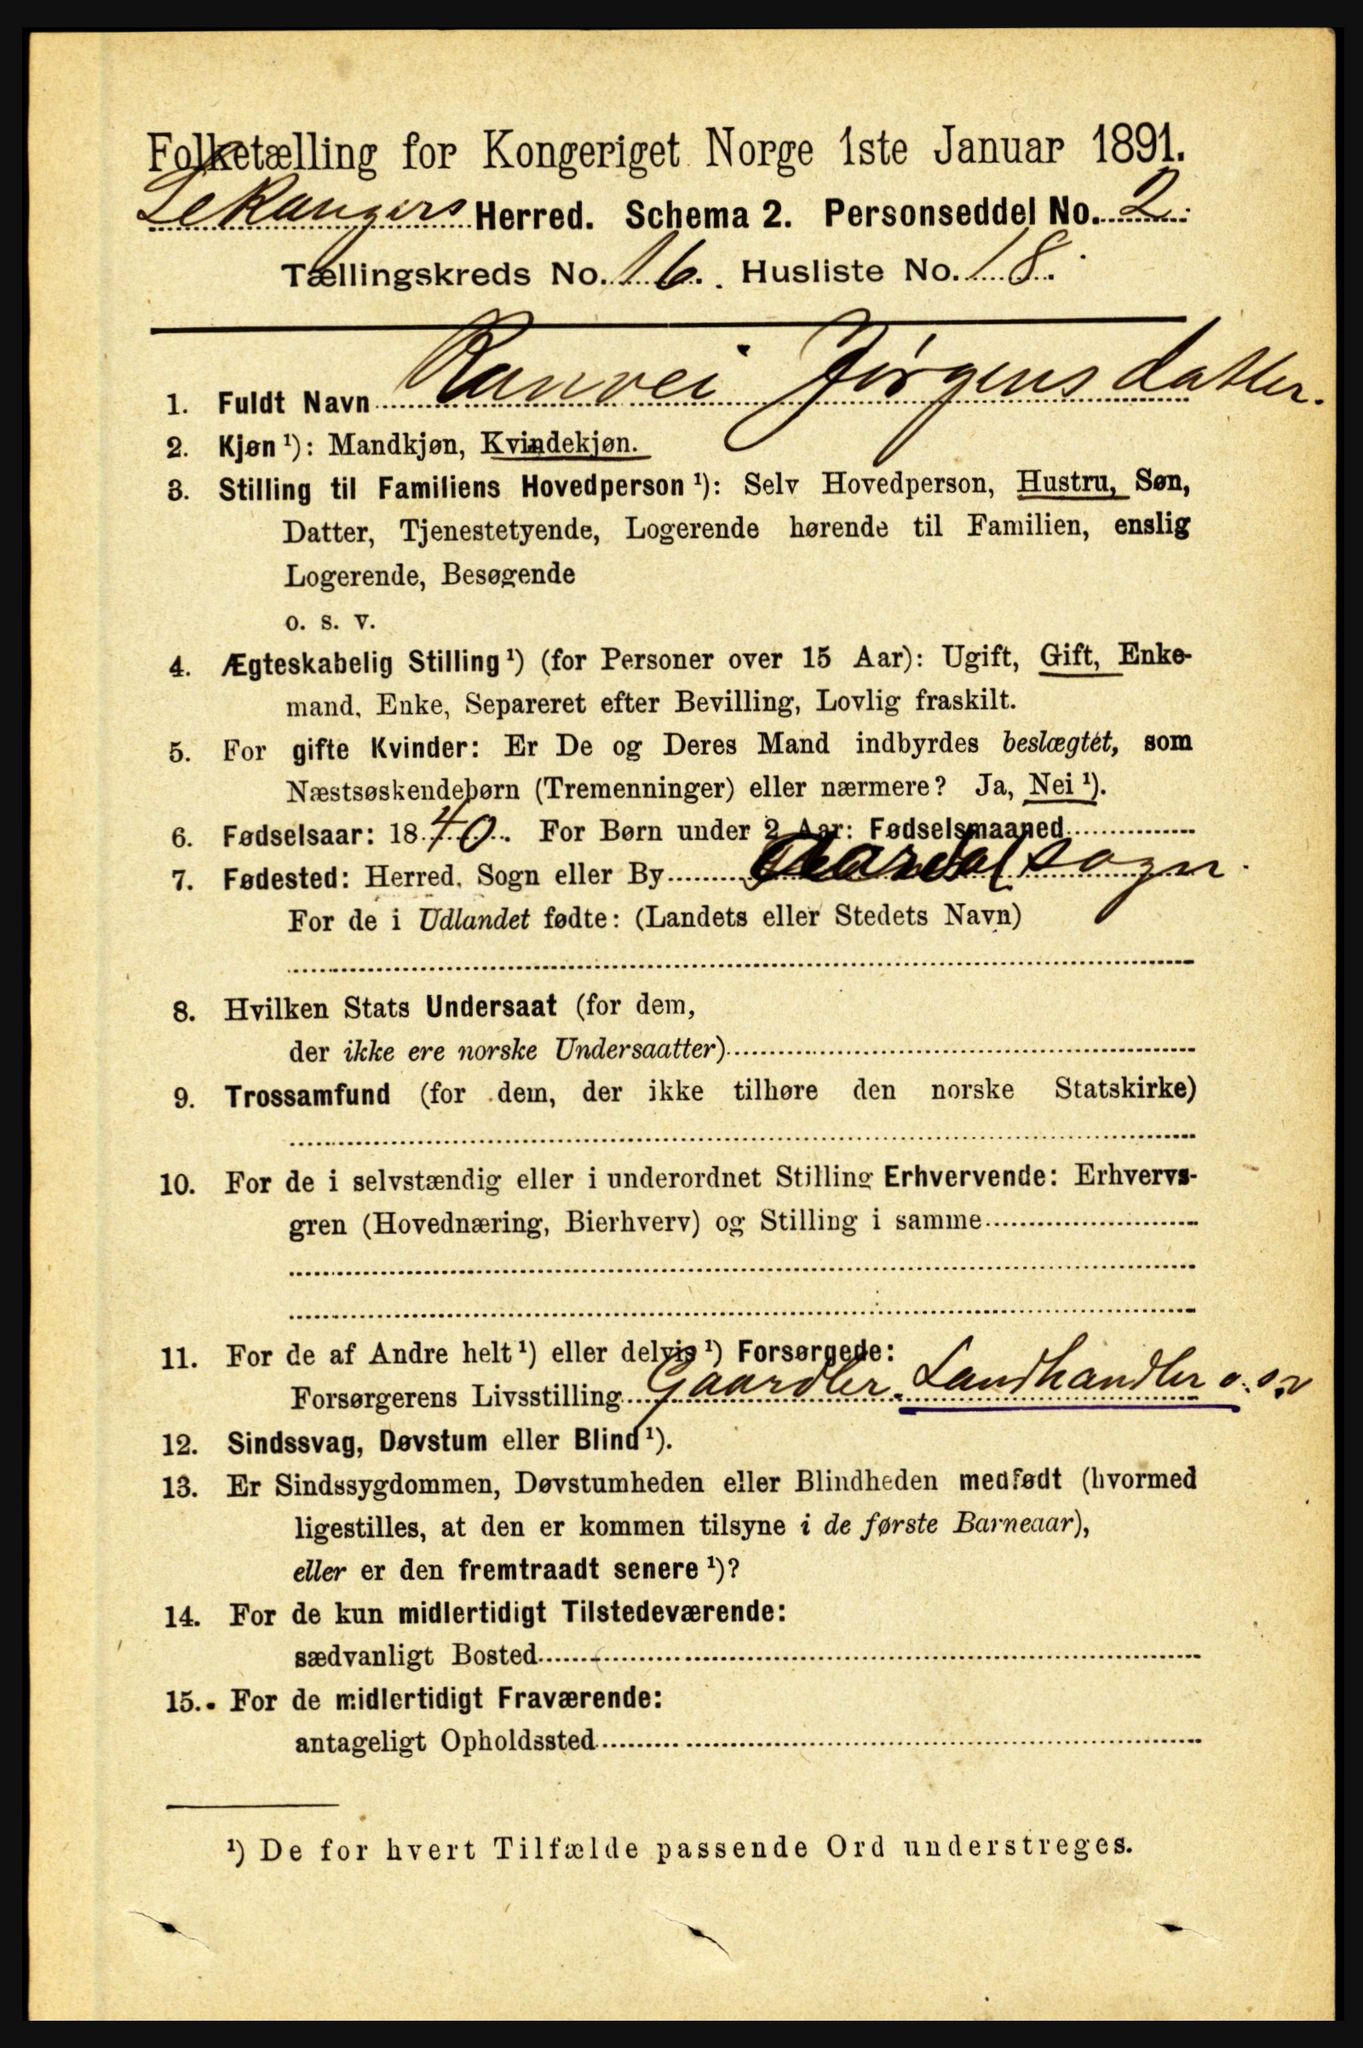 Folketælling for Kongeriget Norge 1ste Januar 1891.
Lekangers Herred. Schema 2. Personseddel No. 2.
Tællingskreds No. 16. Husliste No. 18.
1. Fuldt Navn Ranvei Jørgensdatter.
2. Kjøn ¹): Mandkjøn, Kvindekjøn.
3. Stilling til Familiens Hovedperson ¹): Selv Hovedperson, Hustru, Søn,
Datter, Tjenestetyende, Logerende hørende til Familien, enslig
Logerende, Besøgende
o. s. v.
4. Ægteskabelig Stilling ¹) (for Personer over 15 Aar): Ugift, Gift, Enke-
mand, Enke, Separeret efter Bevilling, Lovlig fraskilt.
5. For gifte Kvinder: Er De og Deres Mand indbyrdes beslægtet, som
Næstsøskendebørn (Tremenninger) eller nærmere? Ja, Nei ¹).
6. Fødselsaar: 1840. For Børn under 2 Aar: Fødselsmaaned
7. Fødested: Herred, Sogn eller By Aardal sogn.
For de i Udlandet fødte: (Landets eller Stedets Navn)
8. Hvilken Stats Undersaat (for dem,
der ikke ere norske Undersaatter)
9. Trossamfund (for dem, der ikke tilhøre den norske Statskirke)
10. For de i selvstændig eller i underordnet Stilling Erhvervende: Erhvervs-
gren (Hovednæring, Bierhverv) og Stilling i samme
11. For de af Andre helt ¹) eller delvis ¹) Forsørgede:
Forsørgerens Livsstilling Gaardbr. Landhandler o.s.v
12. Sindssvag, Døvstum eller Blind ¹).
13. Er Sindssygdommen, Døvstumheden eller Blindheden medfødt (hvormed
ligestilles, at den er kommen tilsyne i de første Barneaar),
eller er den fremtraadt senere ¹)?
14. For de kun midlertidigt Tilstedeværende:
sædvanligt Bosted
15. For de midlertidigt Fraværende:
antageligt Opholdssted
¹) De for hvert Tilfælde passende Ord understreges.